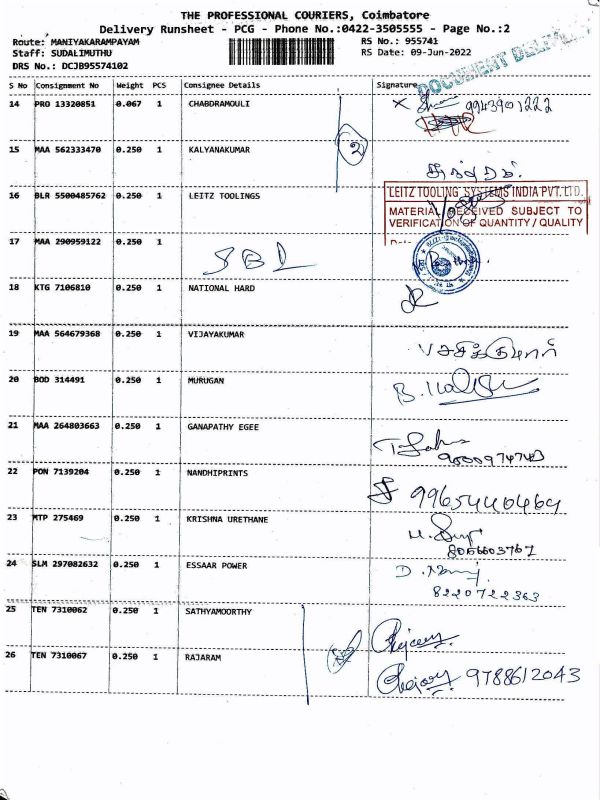 THE PROFESSIONAL COURIERS, Coimbatore
Delivery Runsheet - PCG - Phone No.:0422-3505555 - Page No.:2
Route: MANIYAKARAMPAYAM
RS No.: 955741
Staff: SUDALIMUTHU
RS Date: 09-Jun-2022
DRS No.: DCJB95574102
DOCUMENT DELIVERY
S No Consignment No Weight PCS Consignee Details Signature
14 PRO 13320851 0.067 1 CHABDRAMOULI 9943901222
15 MAA 562333470 0.250 1 KALYANAKUMAR
2
16 BLR 5500485762 0.250 1 LEITZ TOOLINGS
LEITZ TOOLING SYSTEMS INDIA PVT. LTD.
MATERIAL RECEIVED SUBJECT TO
VERIFICATION OF QUANTITY / QUALITY
17 MAA 290959122 0.250 1 SBI
18 KTG 7106810 0.250 1 NATIONAL HARD
19 MAA 564679368 0.250 1 VIJAYAKUMAR
20 BOD 314491 0.250 1 MURUGAN
21 MAA 264803663 0.250 1 GANAPATHY EGEE
22 PON 7139204 0.250 1 NANDHIPRINTS 9965440464
23 MTP 275469 0.250 1 KRISHNA URETHANE
8056603767
24 SLM 297082632 0.250 1 ESSAAR POWER
8220722363
25 TEN 7310062 0.250 1 SATHYAMOORTHY
26 TEN 7310067 0.250 1 RAJARAM 9788612043